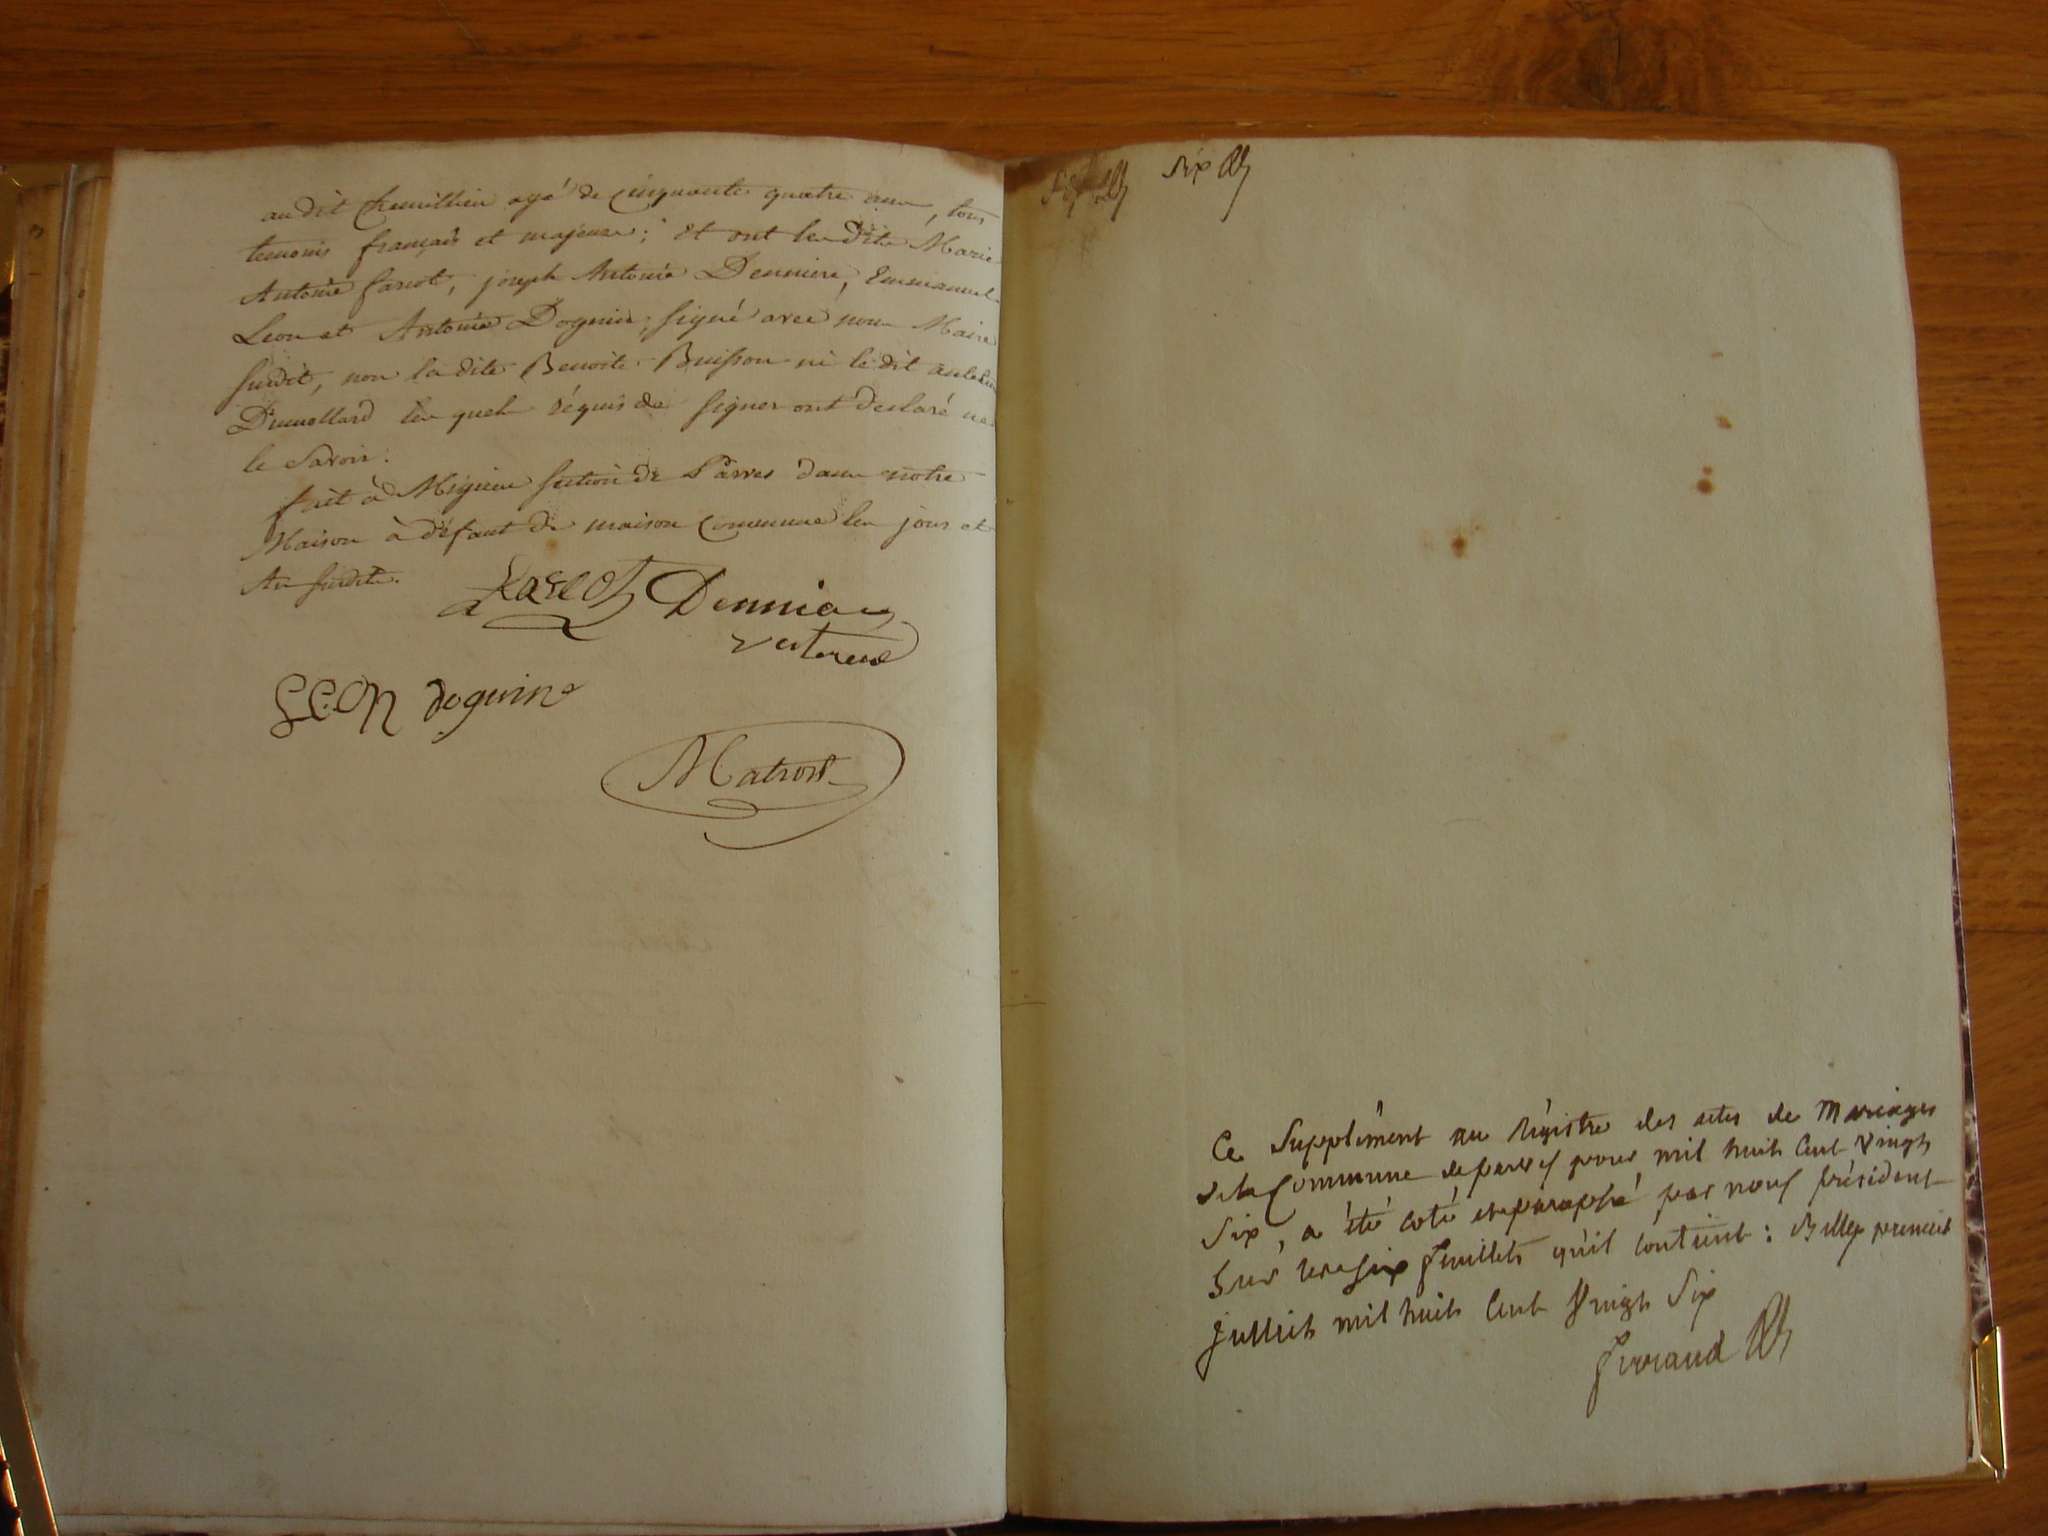 audit Chemillieu agé de cinquante quatre ans, tous
temoins français et majeurs; et ont les dits Marie
Antoine farcot, joseph Antoine Demiere, Emmanuel
Leon et Antoine Doguin; signé avec nous Maire
susdit, non la dite Benoite Buisson ni le dit anthelme
Dumollard les quels réquis de signer ont declaré ne
le savoir.
fait à Migieu section de Parves dans notre
Maison à défaut de maison commune les jour et
An susdits.
farcot
LEON doguin
six
six
Ce Supplément au régistre des actes de Mariages
de la Commune de parves pour mil huit Cent Vingt
Six, a été coté et paraphé par nous président
Sur les six feuillets qu'il contient: Belley premier
juillet mil huit Cent Vingt Six